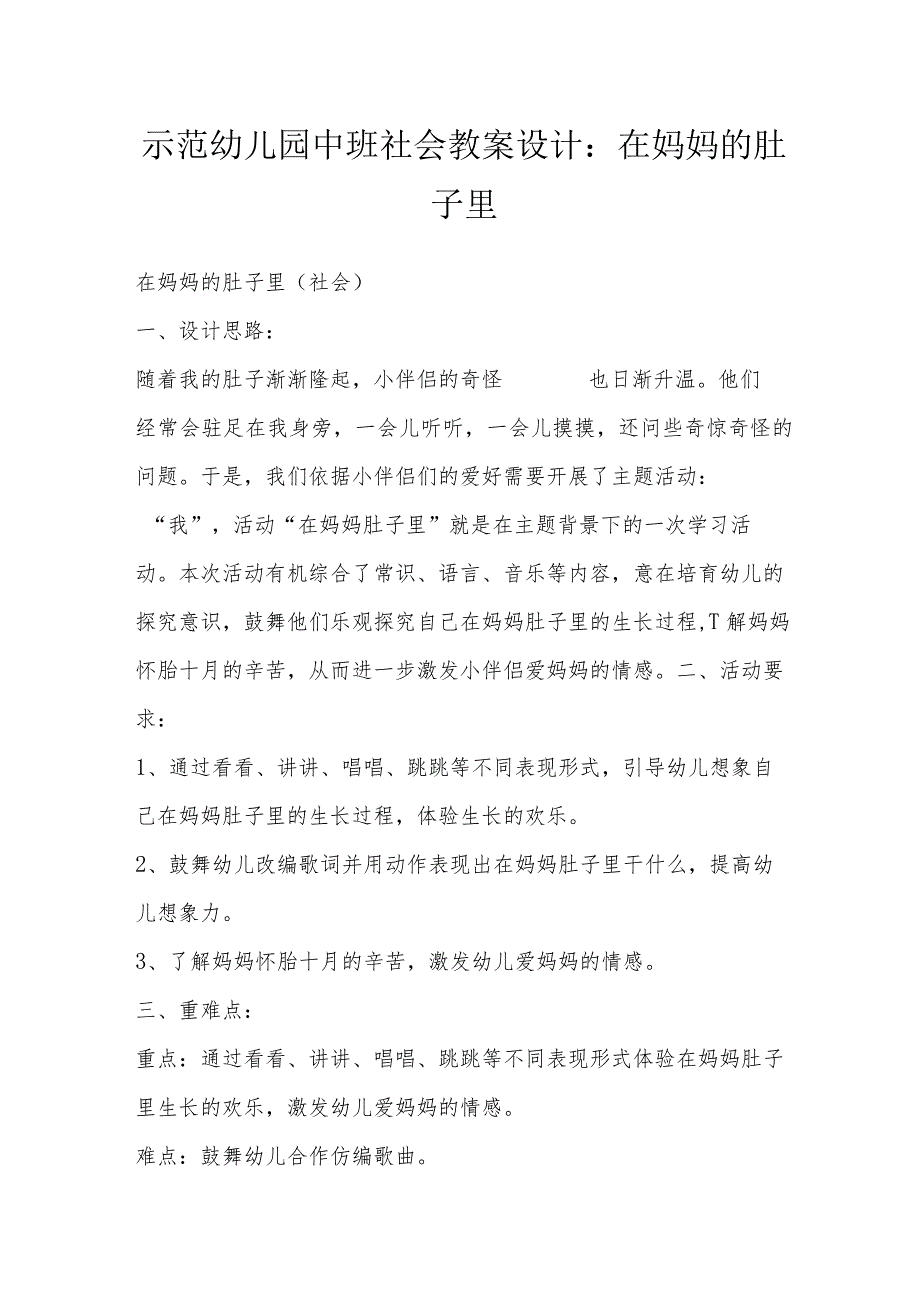 示范幼儿园中班社会教案设计：在妈妈的肚
子里
在妈妈的肚子里（社会）
一、设计思路：
随着我的肚子渐渐隆起，小伴侣的奇怪 也日渐升温。他们
经常会驻足在我身旁，一会儿听听，一会儿摸摸，还问些奇惊奇怪的
问题。于是，我们依据小伴侣们的爱好需要开展了主题活动：
“我”，活动“在妈妈肚子里”就是在主题背景下的一次学习活
动。本次活动有机综合了常识、语言、音乐等内容，意在培育幼儿的
探究意识，鼓舞他们乐观探究自己在妈妈肚子里的生长过程,T解妈妈
怀胎十月的辛苦，从而进一步激发小伴侣爱妈妈的情感。二、活动要
求：
1、通过看看、讲讲、唱唱、跳跳等不同表现形式，引导幼儿想象自
己在妈妈肚子里的生长过程，体验生长的欢乐。
2、鼓舞幼儿改编歌词并用动作表现出在妈妈肚子里干什么，提高幼
儿想象力。
3、了解妈妈怀胎十月的辛苦，激发幼儿爱妈妈的情感。
三、重难点：
重点：通过看看、讲讲、唱唱、跳跳等不同表现形式体验在妈妈肚子
里生长的欢乐，激发幼儿爱妈妈的情感。
难点：鼓舞幼儿合作仿编歌曲。